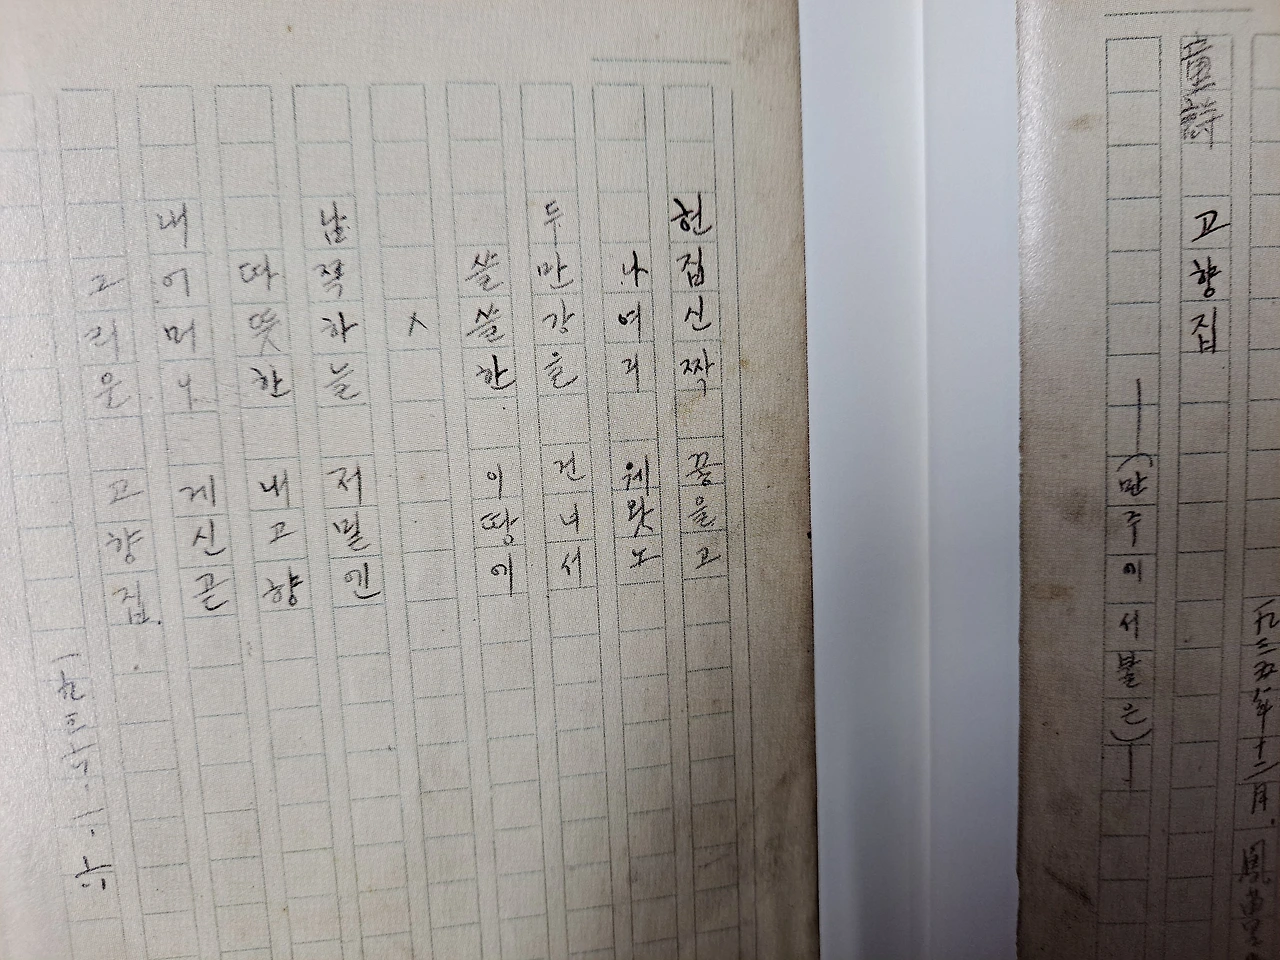 九三五年十二月.
童詩 고향집
—(만주에서불은)—
헌집신짝 끟을고
나여긔 웨왓노
두만강을 건너서
쓸쓸한 이땅에
×
남쪽하늘 저밑엔
따뜻한 내고향
내어머니 게신곧
그리운 고향집.
一九三六.一.六